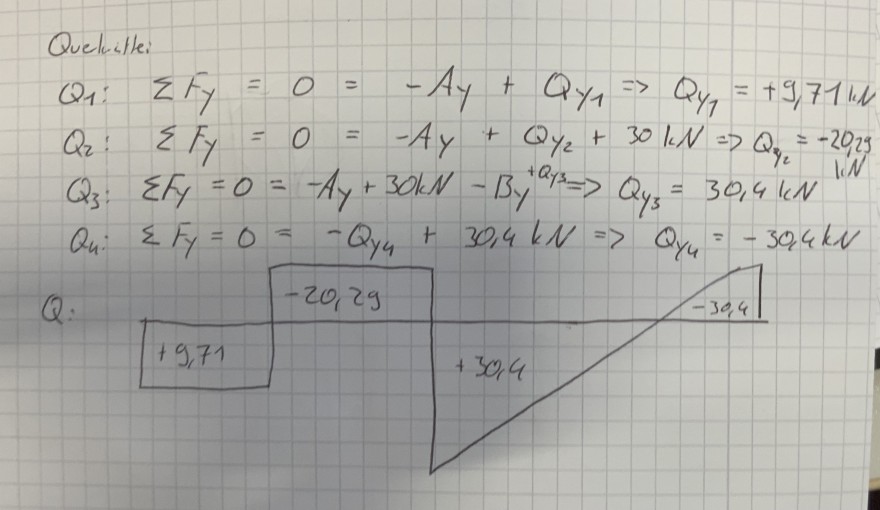 Querkräfte:
Q1: ΣFy = 0 = -Ay + Qy1 => Qy1 = +9,71kN
Q2: ΣFy = 0 = -Ay + Qy2 + 30 kN => Qy2 = -20,29 kN
Q3: ΣFy = 0 = -Ay + 30kN - By +Qy3 => Qy3 = 30,4 kN
Q4: ΣFy = 0 = -Qy4 + 30,4 kN => Qy4 = -30,4kN
-20,29
Q:
-30,4
+9,71
+30,4